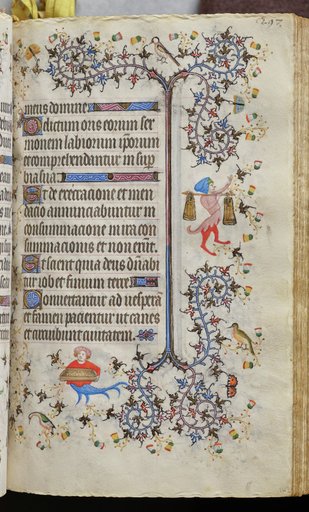 meus domine
Delictum oris eorum ser
monem labiorum ipsorum
et comprehendantur in sup
bia sua
Et de execratione et men
dacio annunciabuntur in
consummacione in ira con
summacionis et non erunt.
Et scient quia deus dnabi
tur iob et finium terre
Convertantur ad vespera
et famen pacientur ut canes
et circuibunt civitatem.